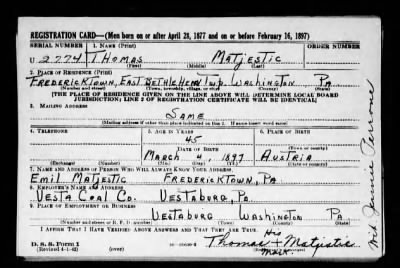 REGISTRATION CARD—(Men born on or after April 28, 1877 and on or before February 16, 1897)
SERIAL NUMBER 1. NAME (Print) ORDER NUMBER
U 2774 THOMAS MATJESTIC
(First) (Middle) (Last)
2. PLACE OF RESIDENCE (Print)
FREDERICKTOWN, EAST BETHLEHEM TWP. WASHINGTON PA
(Number and street) (Town, township, village, or city) (County) (State)
[THE PLACE OF RESIDENCE GIVEN ON THE LINE ABOVE WILL DETERMINE LOCAL BOARD
JURISDICTION; LINE 2 OF REGISTRATION CERTIFICATE WILL BE IDENTICAL]
3. MAILING ADDRESS
SAME
[Mailing address if other than place indicated on line 2. If same insert word same]
4. TELEPHONE 5. AGE IN YEARS 6. PLACE OF BIRTH
45
DATE OF BIRTH
MARCH 4, 1897 AUSTRIA
(Exchange) (Number) (Mo.) (Day) (Yr.) (State or country)
7. NAME AND ADDRESS OF PERSON WHO WILL ALWAYS KNOW YOUR ADDRESS
EMIL MATJESTIC FREDERICKTOWN, PA.
8. EMPLOYER'S NAME AND ADDRESS
VESTA COAL CO. VESTABURG, PA.
9. PLACE OF EMPLOYMENT OR BUSINESS
VESTABURG WASHINGTON PA
(Number and street or R. F. D. number) (Town) (County) (State)
I AFFIRM THAT I HAVE VERIFIED ABOVE ANSWERS AND THAT THEY ARE TRUE.
D. S. S. Form 1
(Revised 4-1-42) (over)
His
Thomas + Matjestic
Mark.
Wit. Jennie